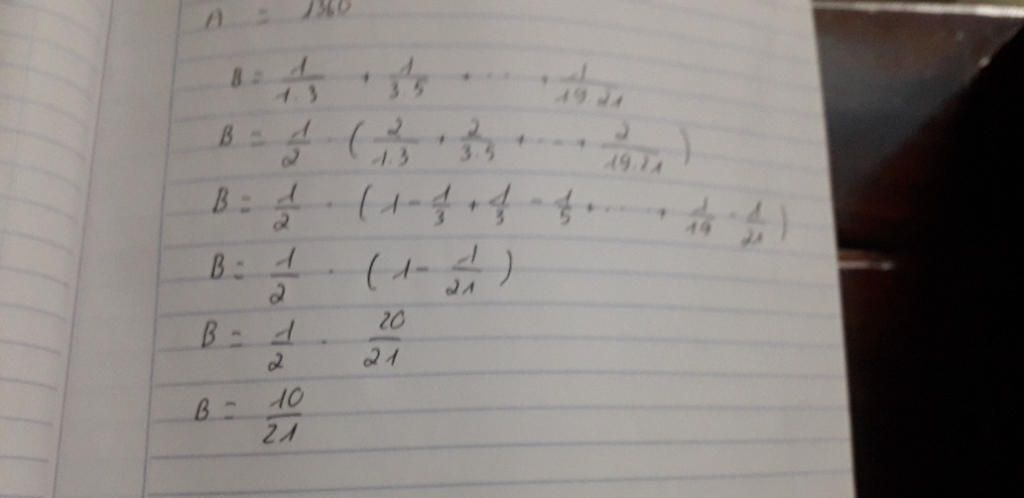 A = 1360
B = 1/1.3 + 1/3.5 + ... + 1/19.21
B = 1/2 . (2/1.3 + 2/3.5 + ... + 2/19.21)
B = 1/2 . (1 - 1/3 + 1/3 - 1/5 + ... + 1/19 - 1/21)
B = 1/2 . (1 - 1/21)
B = 1/2 . 20/21
B = 10/21